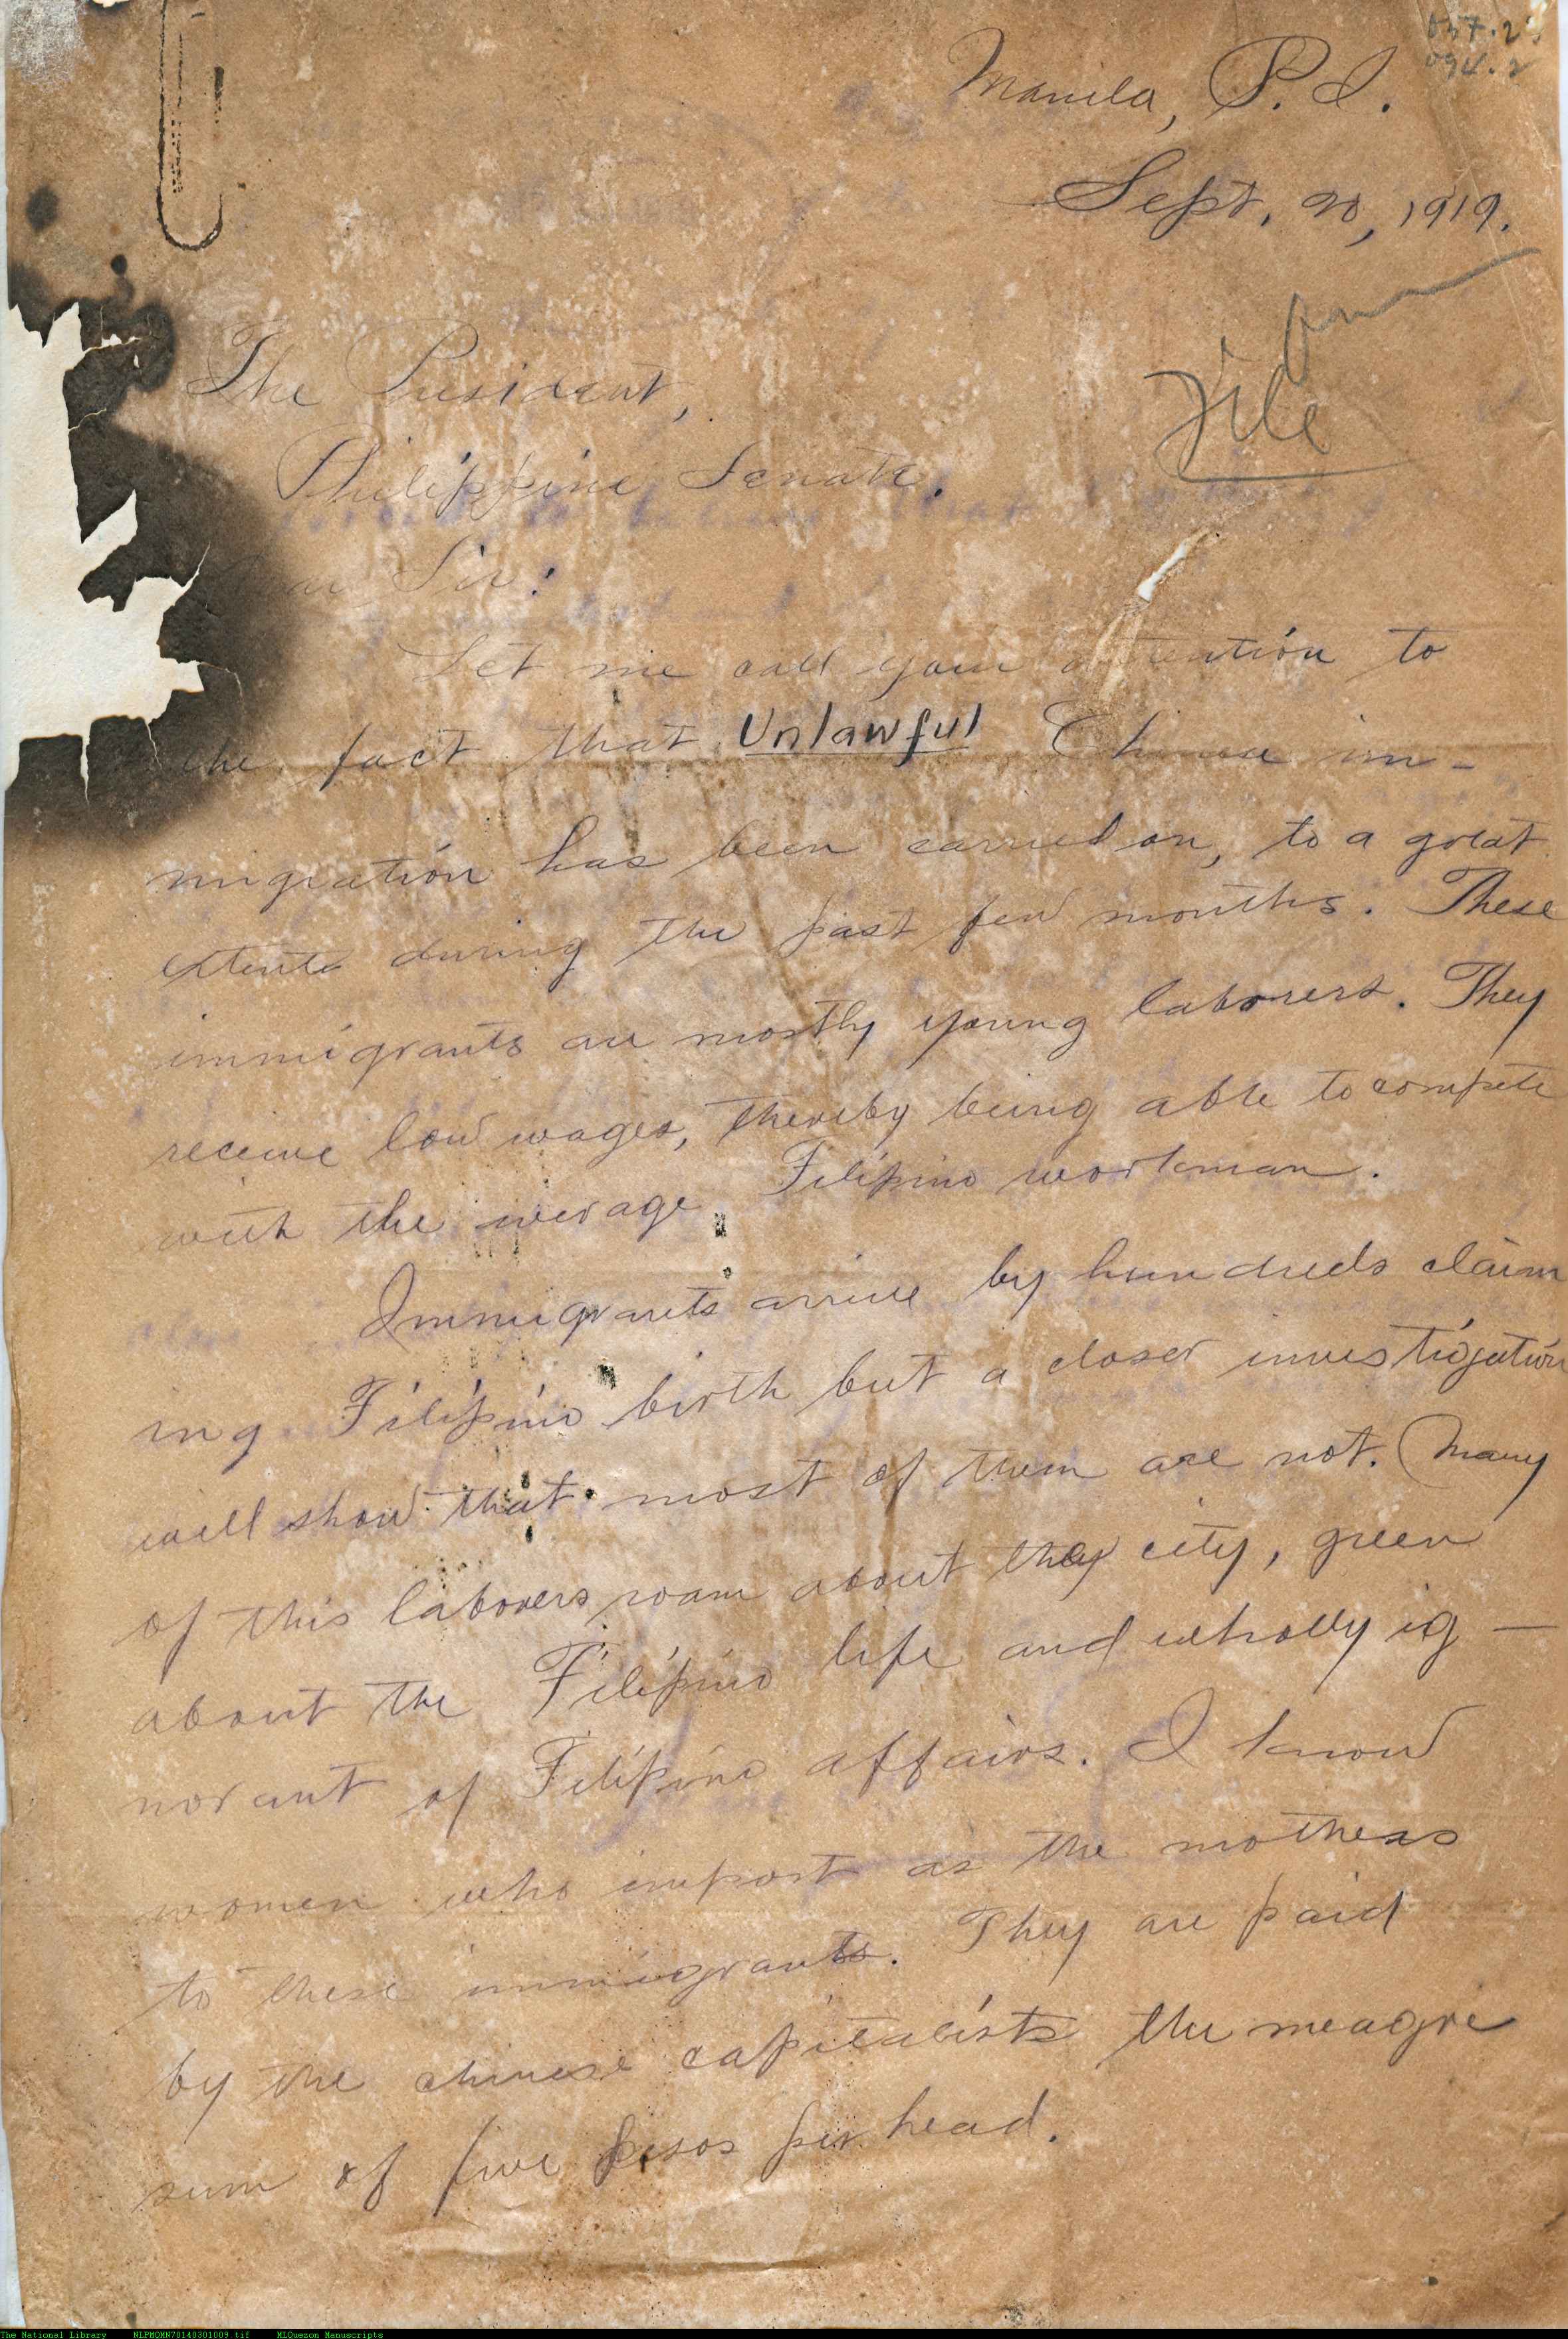 Manila, P. I.
Sept. 20, 1919.
File
The President,
Philippine Senate.
Sir:
Let me call your attention to
the fact that Unlawful Chinese im-
migration has been carried on, to a great
extent during the past few months. These
immigrants are mostly young laborers. They
receive low wages, thereby being able to compete
with the average Filipino workman.
Immigrants arrive by hundreds claim
ing Filipino birth but a closer investigation
will show that most of them are not. Many
of this laborers roam about the city, green
about the Filipino life and wholly ig-
norant of Filipino affairs. I know
women who import as the mothers
to these immigrants. They are paid
by the chinese capitalists the meagre
sum of five pesos per head.
The National Library NLPMQMN70140301009.tif MLQuezon Manuscripts